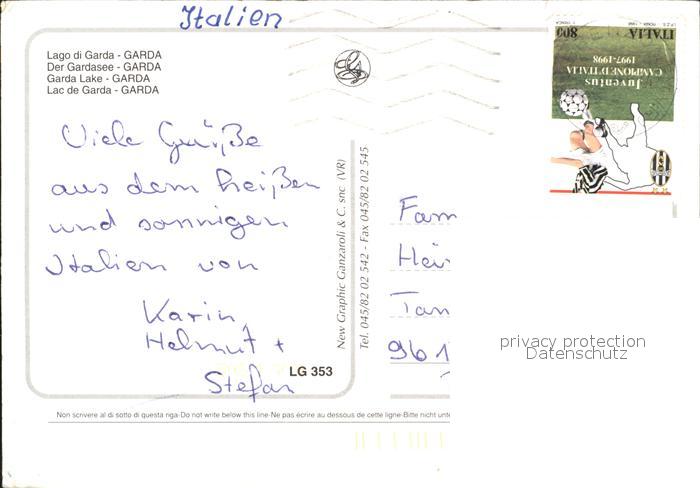 Italien
Lago di Garda - GARDA
Der Gardasee - GARDA
Garda Lake - GARDA
Lac de Garda - GARDA
Viele Grüße
aus dem heißen
und sonnigen
Italien von
Karin,
Helmut +
Stefan
LG 353
New Graphic Ganzaroli & C. snc (VR)
Tel. 045/82 02 542 - Fax 045/82 02 545
ITALIA
800
Juventus
CAMPIONE D'ITALIA
1997-1998
Fam
Hei
Tan
961
privacy protection
Datenschutz
Non scrivere al di sotto di questa riga-Do not write below this line-Ne pas écrire au dessous de cette ligne-Bitte nicht unt